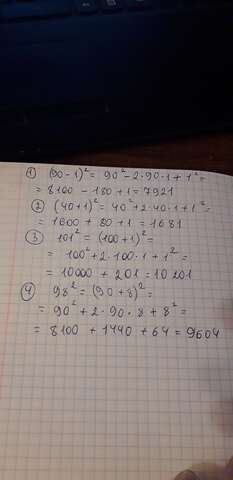 ① (90-1)² = 90²-2·90·1+1² =
= 8100 - 180+1 = 7921
② (40+1)² = 40²+2·40·1+1² =
= 1600 + 80+1 = 1681
③ 101² = (100+1)² =
= 100²+2·100·1+1² =
= 10000 + 201 = 10201
④ 98² = (90+8)² =
= 90²+2·90·8+8² =
= 8100 + 1440 + 64 = 9604